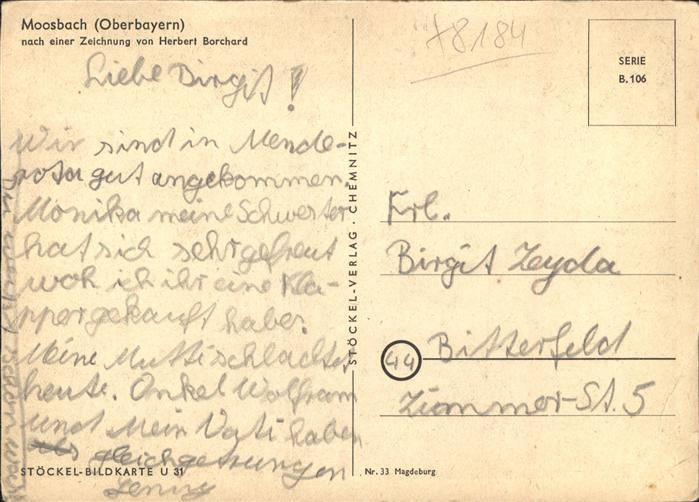 Moosbach (Oberbayern)
nach einer Zeichnung von Herbert Borchard
Liebe Birgit!
Wir sind in Mende-
roda gut angekommen.
Monika meine Schwester
hat sich sehr gefreut
woh ich ihr eine Kla-
pper gekauft habe.
Meine Mutti schlachtet
heute. Onkel Wolfram
und Mein Vati haben
STÖCKEL-BILDKARTE U 31
STÖCKEL-VERLAG · CHEMNITZ
78184
SERIE
B. 106
Frl.
Birgit Zeyda
44 Bitterfeld
Zimmer-St. 5
Nr. 33 Magdeburg